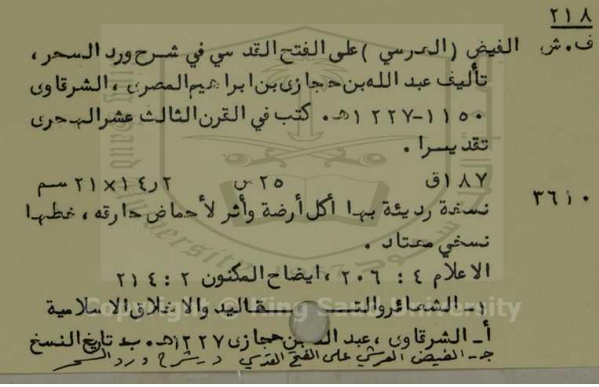 ٢١٨
ف.ش الفيض (العرسي) على الفتح القدسي في شرح ورد السحر،
تأليف عبد الله بن حجازى بن ابراهيم المصرى، الشرقاوى
١١٥٠-١٢٢٧هـ. كتب في القرن الثالث عشر الهجرى
تقديرا.
١٨٧ق ٢٥س ٢١×١٤٫٢سم
٣٦١٠ نسخة رديئة بها أكل أرضة وأثر لأحماض حارقه، خطها
نسخي معتاد.
الاعلام ٤: ٢٠٦، ايضاح المكنون ٢: ٢١٤
١- الشعائر والتقاليد والاخلاق الاسلامية
أ- الشرقاوى، عبد الله بن حجازى ١٢٢٧هـ. ب- تاريخ النسخ
جـ- الفيض العرشي على الفتح القدسي د- شرح ورد السحر
Copyright © King Saud University